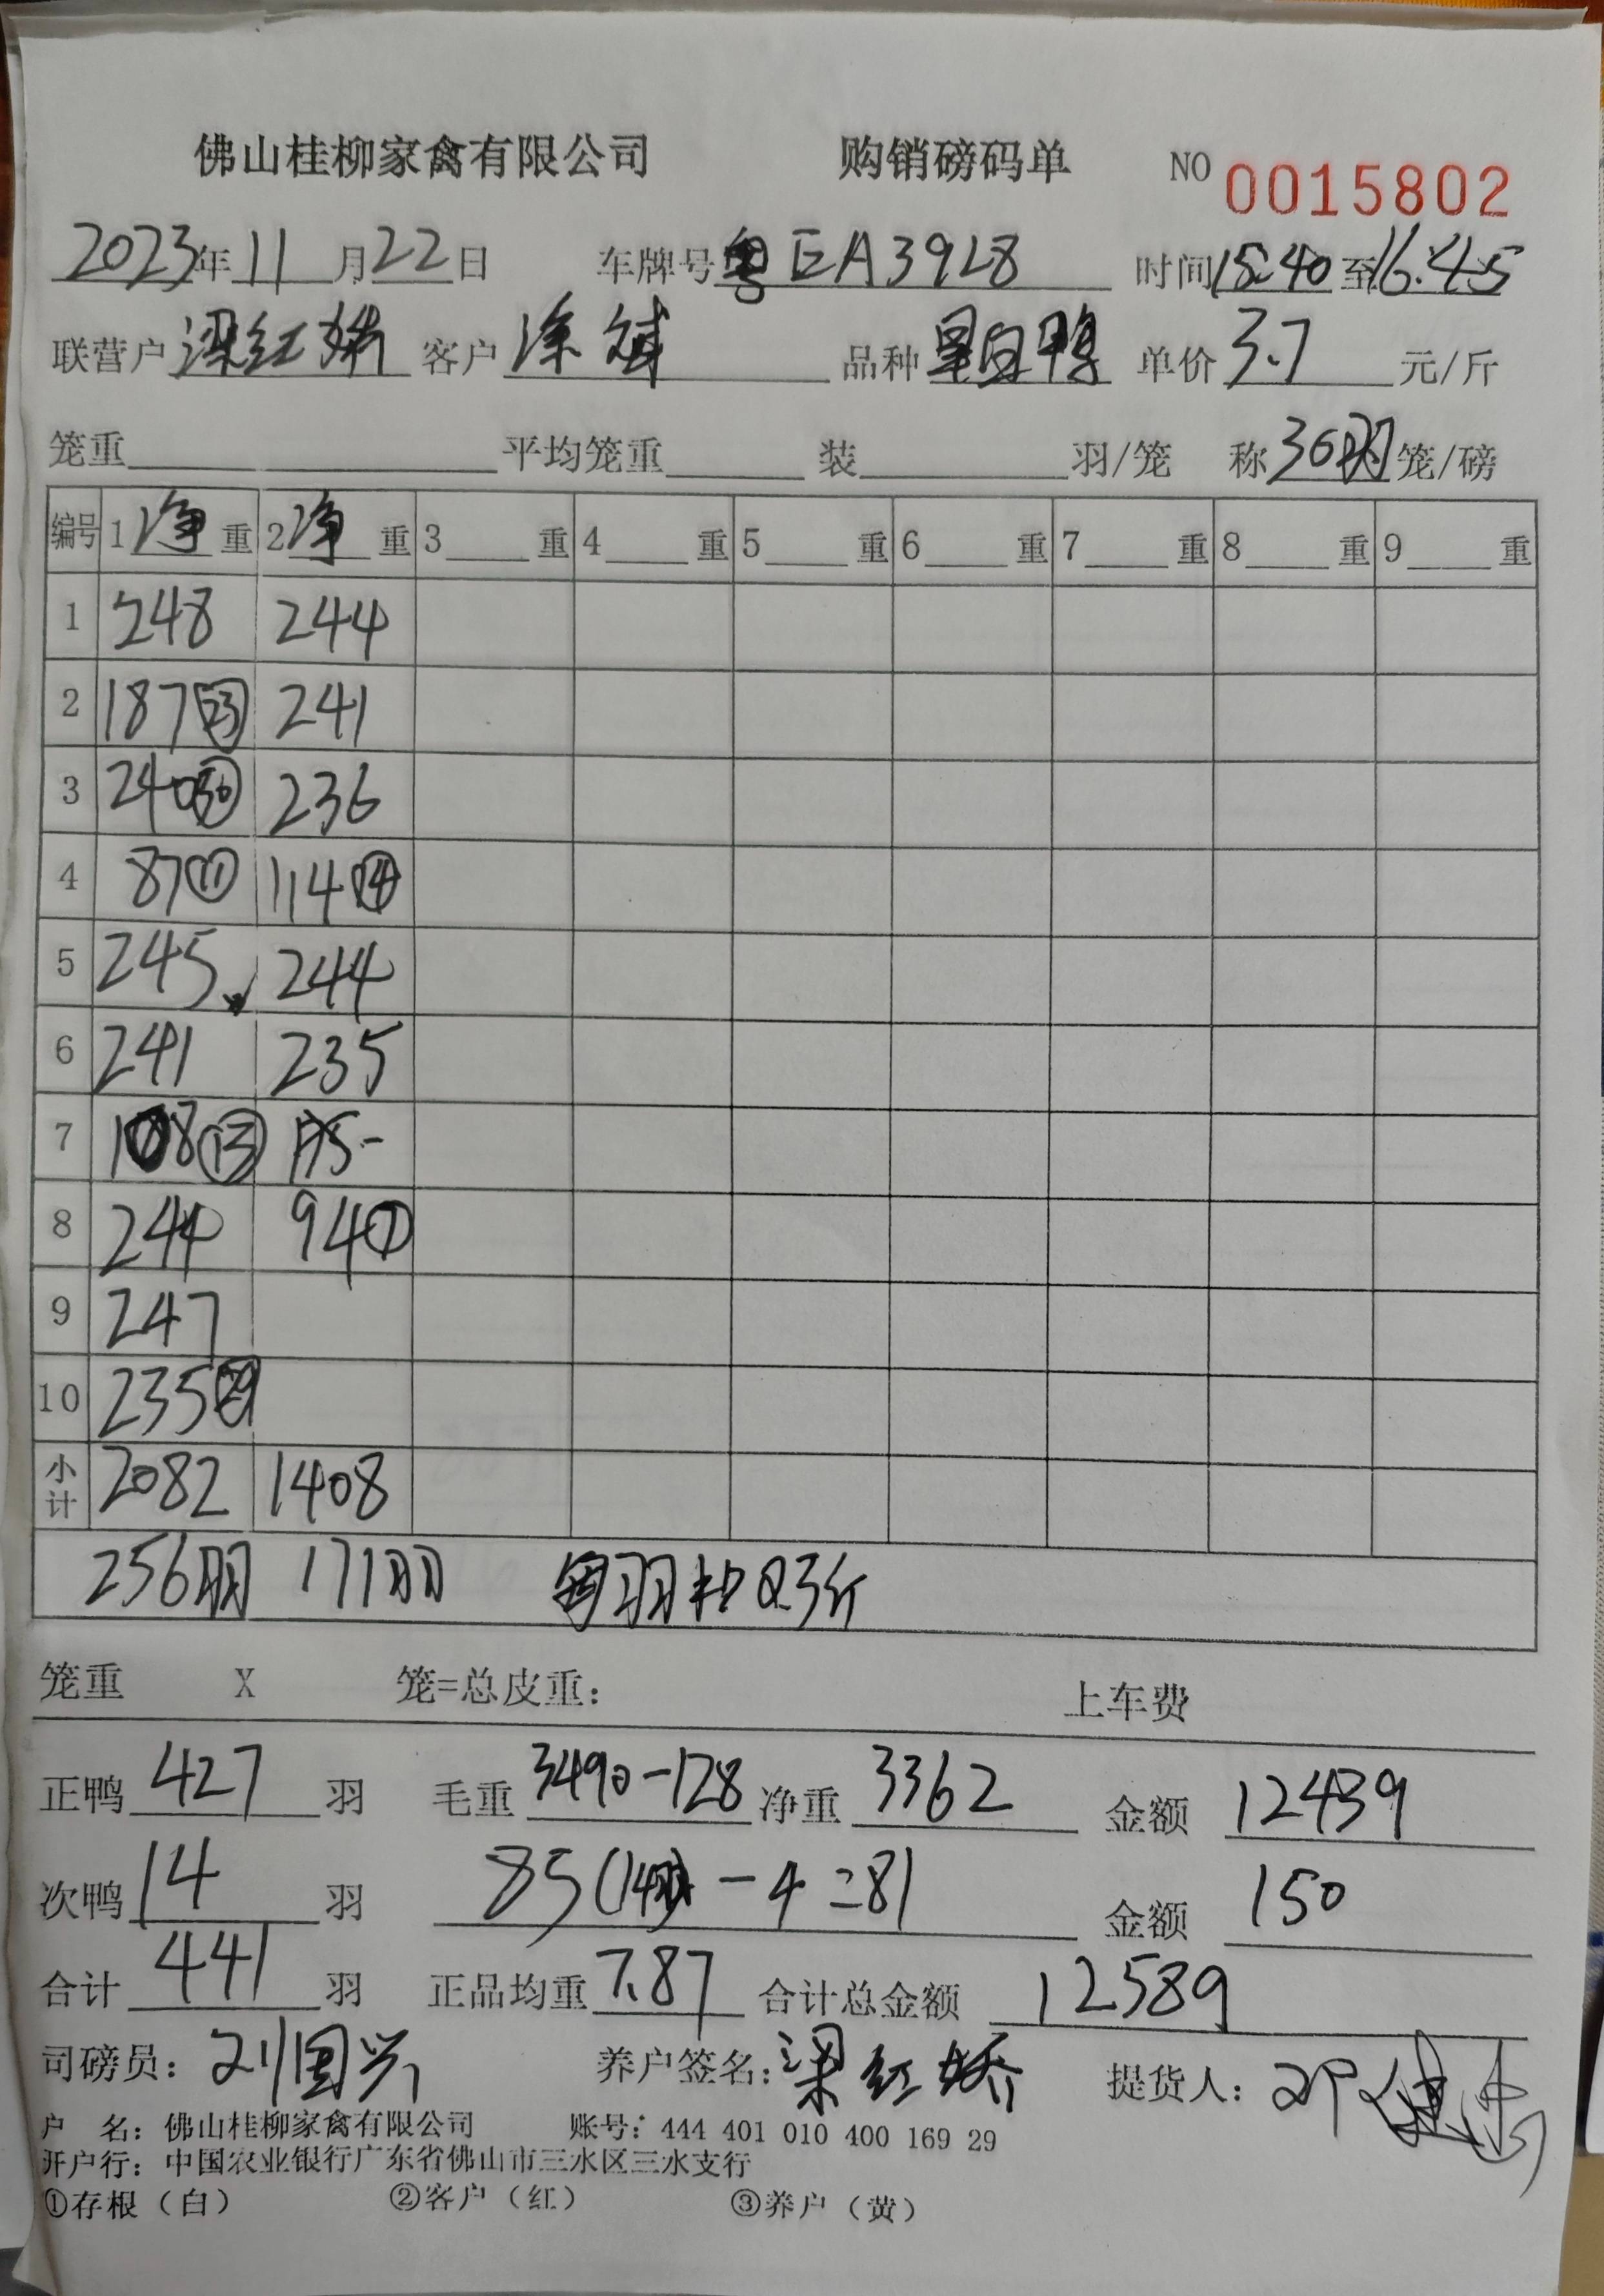 佛山桂柳家禽有限公司 购销磅码单 NO 0015802
2023年11月22日 车牌号粤EA3928 时间15:40至16:45
联营户梁红娇 客户涂斌 品种 白鸭 单价3.7元/斤
笼重 平均笼重 装 羽/笼 称30羽笼/磅
编号 1净重 2净重 3重 4重 5重 6重 7重 8重 9重
1 248 244
2 187 23 241
3 240 30 236
4 87 11 114 14
5 245 244
6 241 235
7 108 13
8 244 94
9 247
10 235 29
小计 2082 1408
256羽 171羽 每羽扣0.3斤
笼重 X 笼=总皮重: 上车费
正鸭427羽 毛重3490-128 净重3362 金额12439
次鸭14羽 85(14羽)-4=81 金额150
合计441羽 正品均重7.87 合计总金额12589
司磅员:刘国兴 养户签名:梁红娇 提货人:
户 名:佛山桂柳家禽有限公司 账号:444 401 010 400 169 29
开户行:中国农业银行广东省佛山市三水区三水支行
①存根(白) ②客户(红) ③养户(黄)